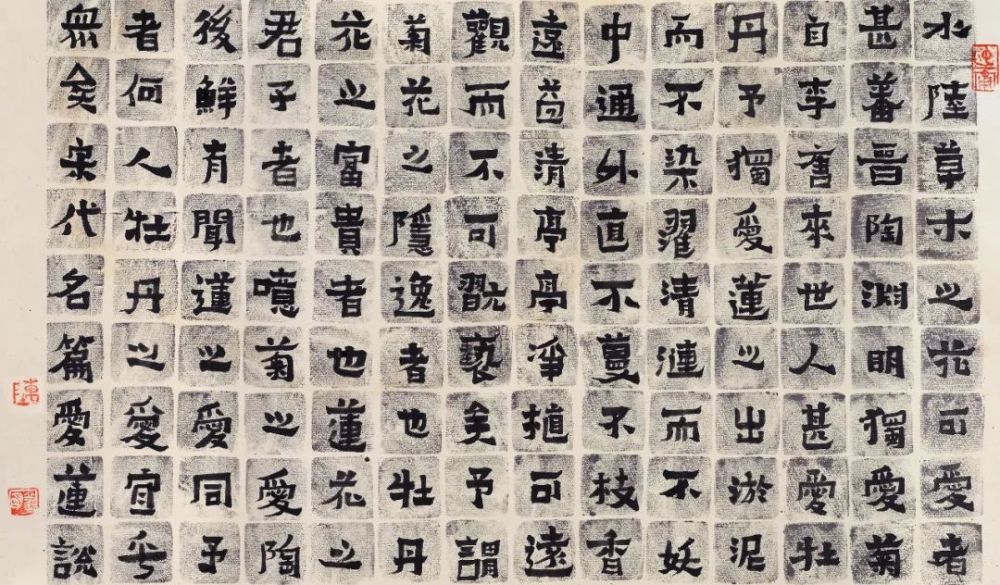 水陸草木之花可愛者
甚蕃晉陶淵明獨愛菊
自李唐來世人甚愛牡
丹予獨愛蓮之出淤泥
而不染濯清漣而不妖
中通外直不蔓不枝香
遠益清亭亭淨植可遠
觀而不可翫褻矣予謂
菊花之隱逸者也牡丹
花之富貴者也蓮花之
君子者也噫菊之愛陶
後鮮有聞蓮之愛同予
者何人牡丹之愛宜乎
衆矣宋代名篇愛蓮說